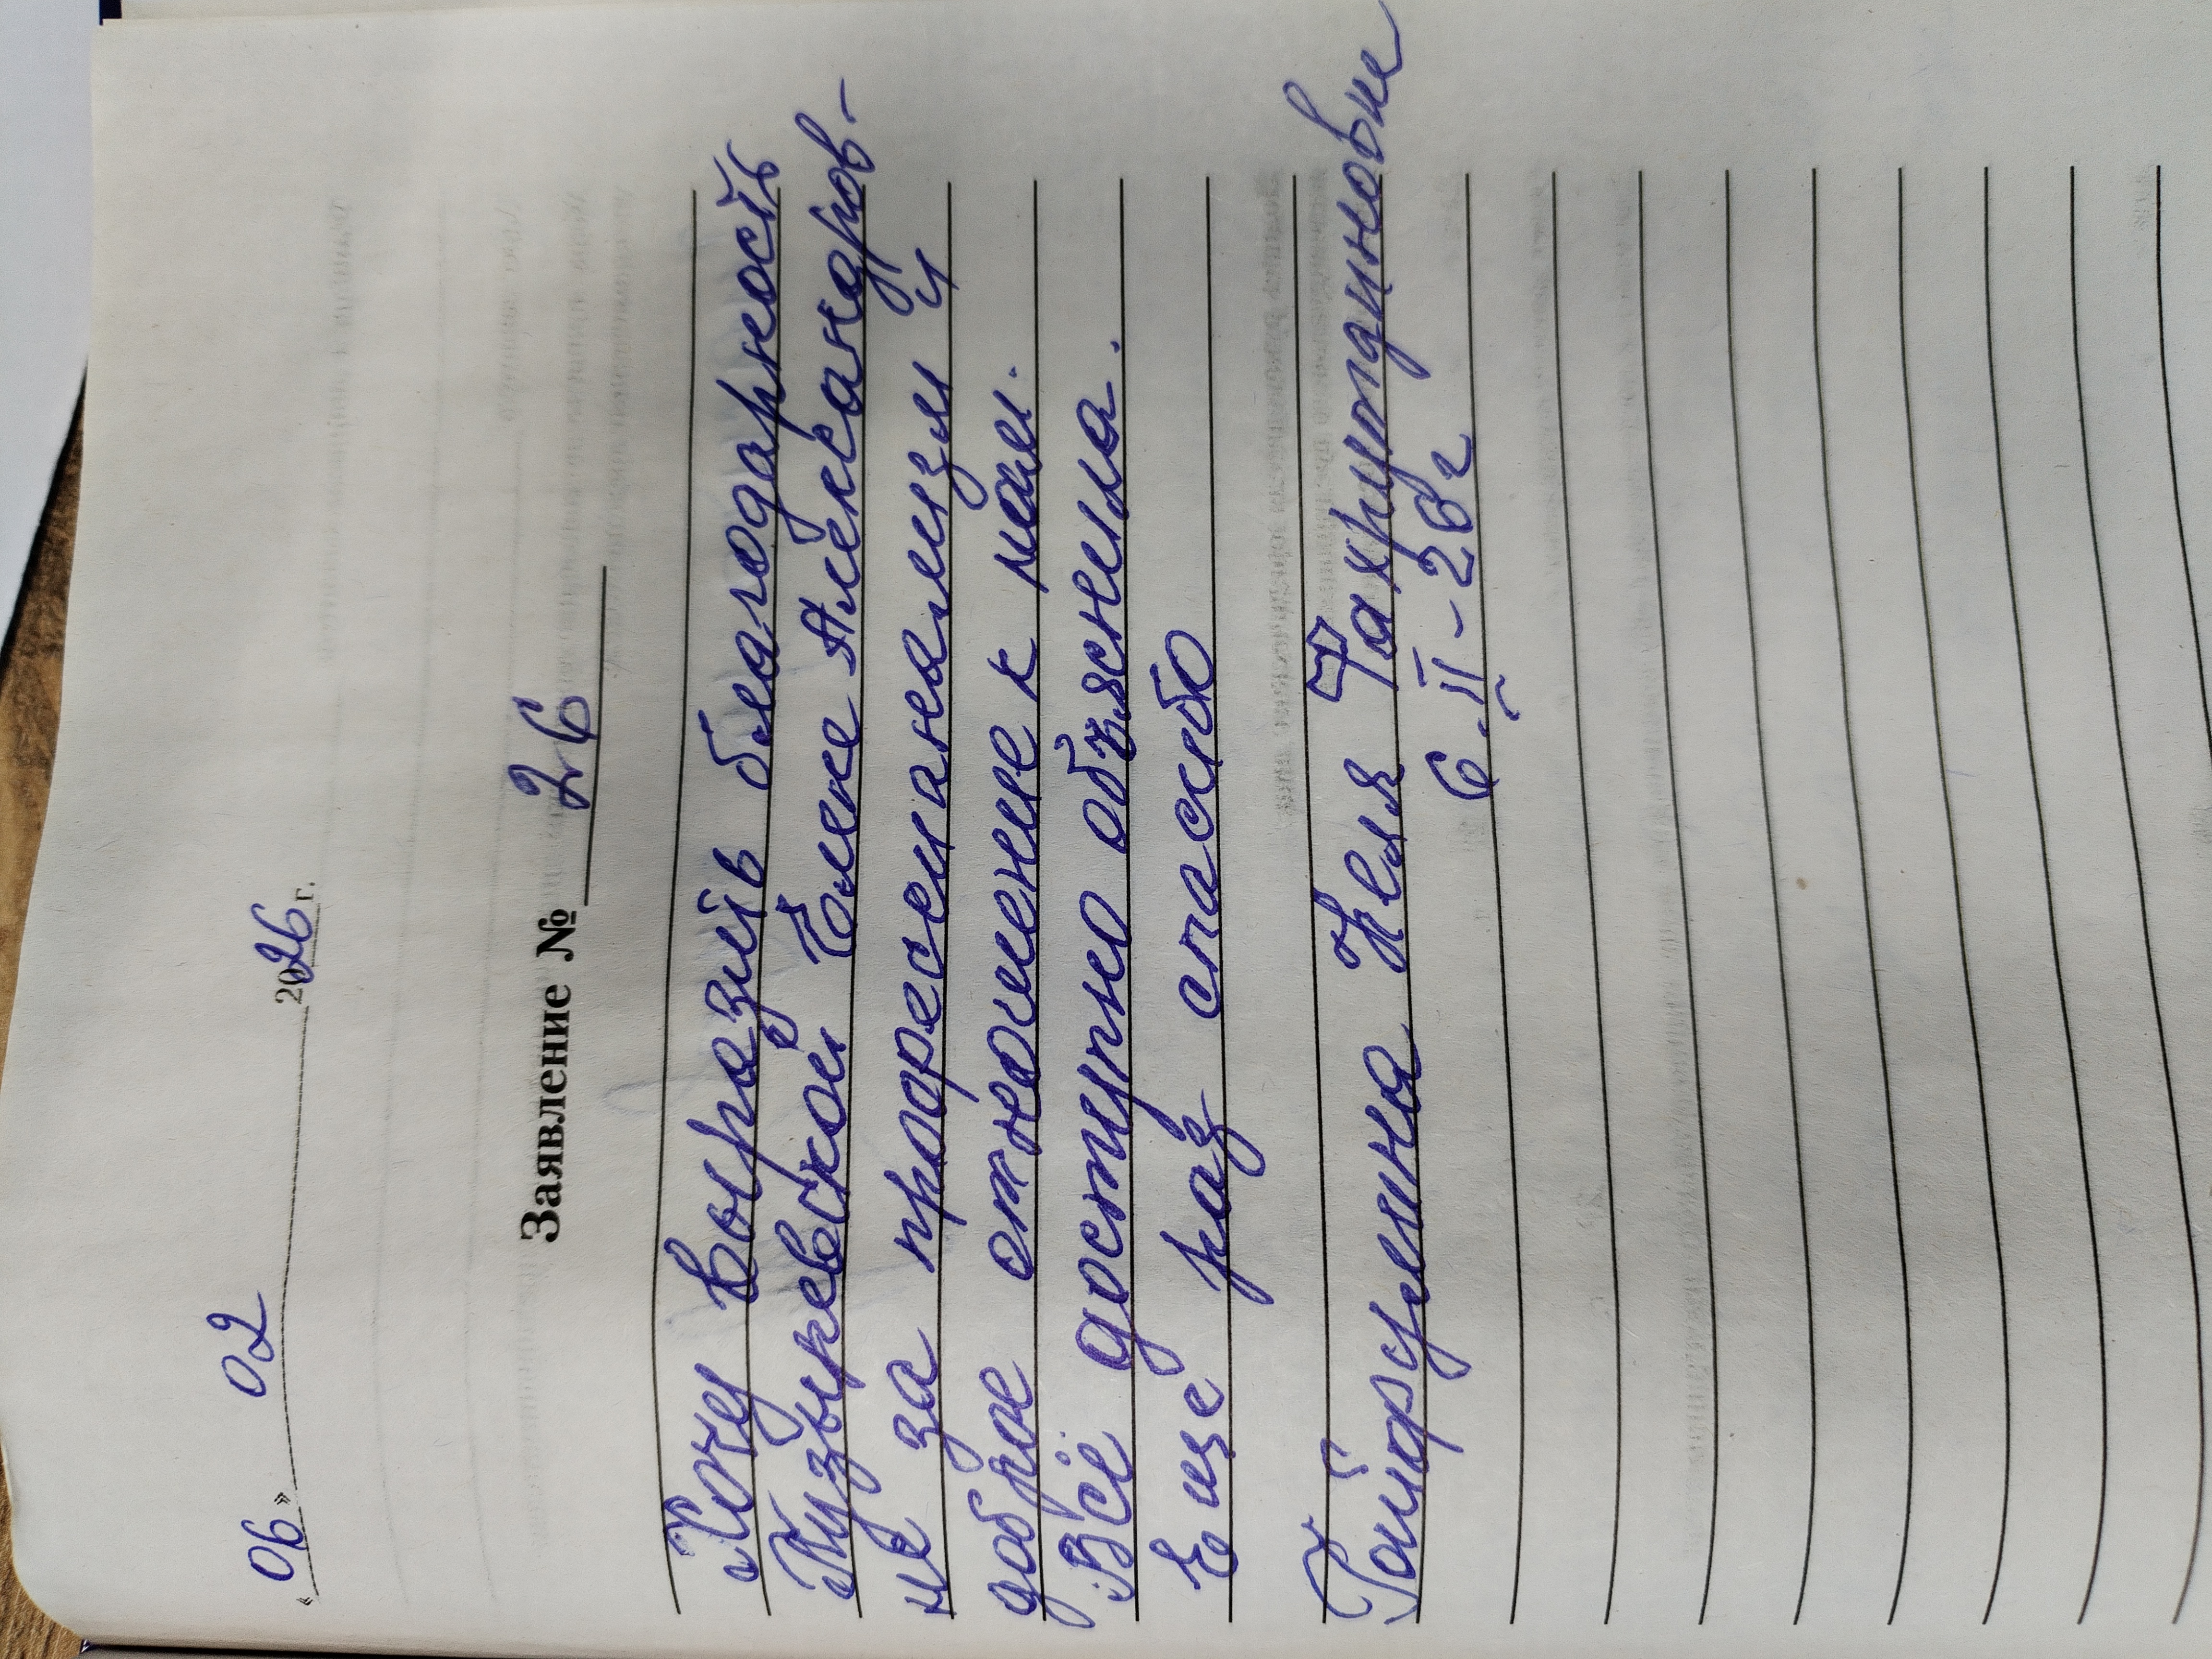 « 06 » 02 2026 г.
Заявление № 26
Хочу выразить благодарность
Пузыревской Елене Александров-
не за професианализм и
доброе отношение к нам.
Всё доступно объяснила.
Еще раз спасибо
Гайфуллина Неля Фахрутдиновна
6.II-26г